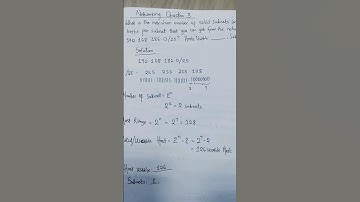 Networking Question 3
What is the maximum number of valid subnets and
hosts per subnet that you can get from the network
192.168.186.0/25? Hosts/Usable:
Solution
192.168.186.0/25
/25 = 255 255 255 128
Number of Subnets = 2ⁿ
2¹ = 2 subnets
Host Range = 2ⁿ = 2⁷ = 128
Valid/Useable Host = 2ⁿ-2 = 2⁷-2
= 126 useable Host
Host usable: 126
Subnets: 2